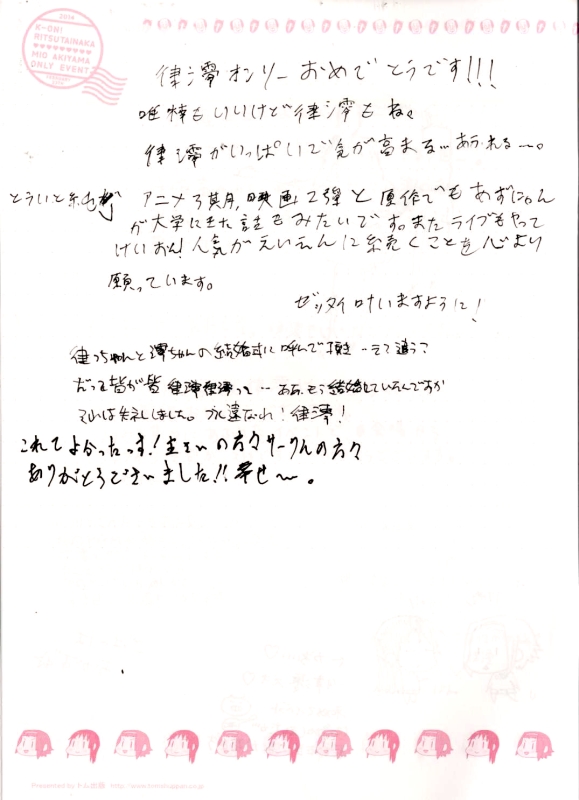 2014
K-ON!
RITSU TAINAKA
MIO AKIYAMA
ONLY EVENT
律澪オンリーおめでとうです!!!
唯梓もいいけど律澪もね。
律澪がいっぱいで気が高まる…あふれる〜。
アニメ3期,映画2弾と原作でもあずにゃん
が大学にきた話もみたいです。またライブもやって
けいおん!人気がえいえんに続くことを心より
願っています。
ゼッタイ叶いますように!
律っちゃんと澪ちゃんの結婚式に呼んで頂き…えっ違う?
だって皆が皆律澪律澪って…ああ、もう結婚していたんですか
それは失礼しました。永遠なれ!律澪!
これてよかったっす!主さいの方々サークんの方々
ありがとうございました!!幸せ〜。
Presented by